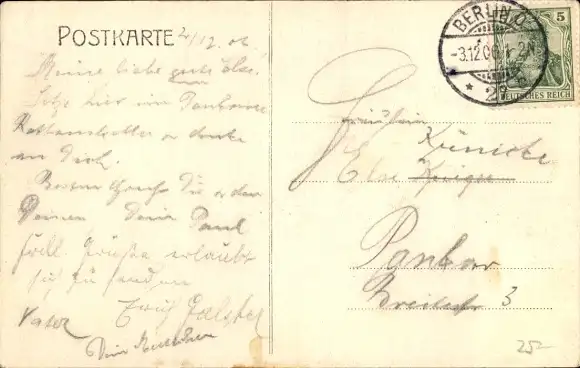 POSTKARTE
2/12. 06.
Meine liebe gute Else.
Sitze hier im Pankower
Rathauskeller u denke
an Dich.
Besten Gruß Dir u den
Deinen Dein Paul
Grüße erlaubt
sich zu senden
Vater Erich
Dein
BERLIN, O.
-3.12.06. 1-2N.
* 27 b
5
DEUTSCHES REICH
Fräulein
Künicke
Else
Pankow
Breitestr 3
25-